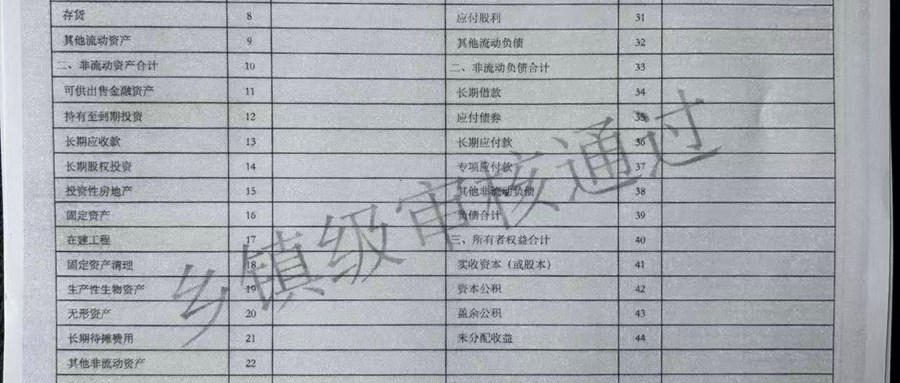 存货 8 应付股利 31
其他流动资产 9 其他流动负债 32
二、非流动资产合计 10 二、非流动负债合计 33
可供出售金融资产 11 长期借款 34
持有至到期投资 12 应付债券 35
长期应收款 13 长期应付款 36
长期股权投资 14 专项应付款 37
投资性房地产 15 其他非流动负债 38
固定资产 16 负债合计 39
在建工程 17 三、所有者权益合计 40
固定资产清理 18 实收资本（或股本） 41
生产性生物资产 19 资本公积 42
无形资产 20 盈余公积 43
长期待摊费用 21 未分配收益 44
其他非流动资产 22
乡镇级审核通过